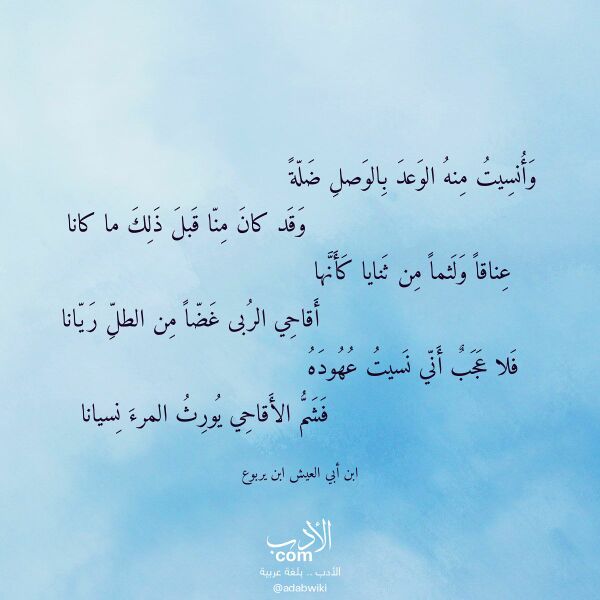 وَأُنسِيتُ مِنهُ الوَعدَ بِالوَصلِ ضَلّةً
وَقَد كانَ مِنّا قَبلَ ذَلِكَ ما كانا
عِناقاً وَلَثماً مِن ثَنايا كَأَنَّها
أَقاحِي الرُبى غَضّاً مِن الطلِّ رَيّانا
فَلا عَجَبٌ أَنّي نَسيتُ عُهُودَهُ
فَشَمُّ الأَقاحِي يُورِثُ المرءَ نِسيانا
ابن أبي العيش ابن يربوع
الأدب
com
الأدب .. بلغة عربية
@adabwiki